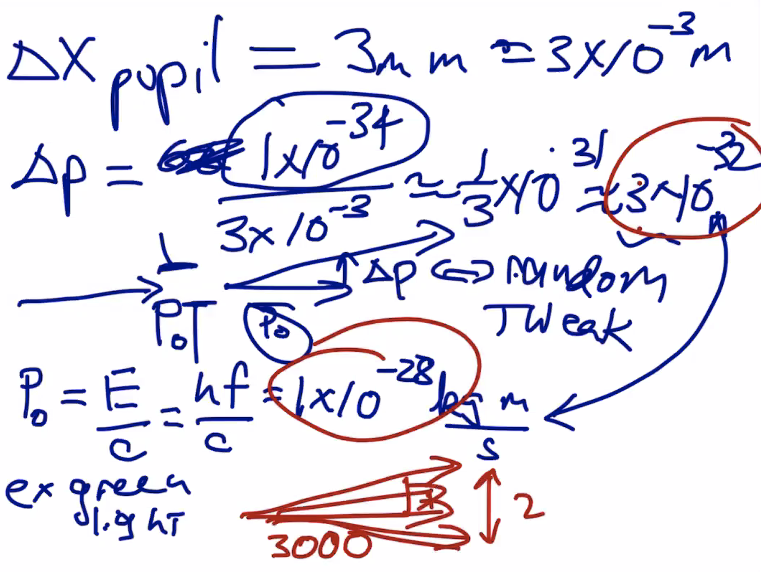 ΔX pupil = 3mm ≈ 3×10^-3 m
Δp = 1×10^-34 / 3×10^-3 ≈ 1/3 ×10^-31 ≈ 3×10^-32
Δp ⇔ random
P₀ P₀ Tweak
P₀ = E/c = hf/c = 1×10^-28 kg m/s
ex green
light
3000 2